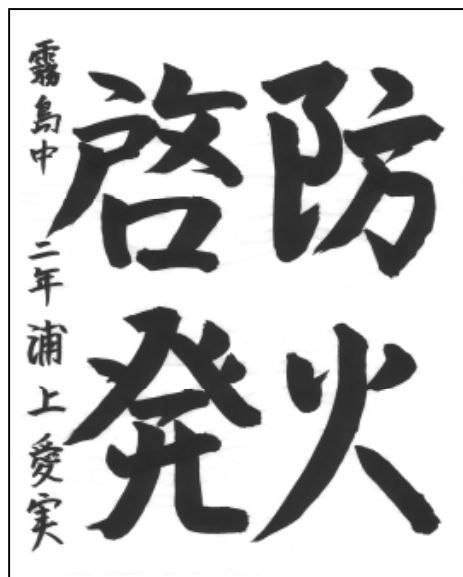 防火
啓発
霧島中 二年 浦上愛実